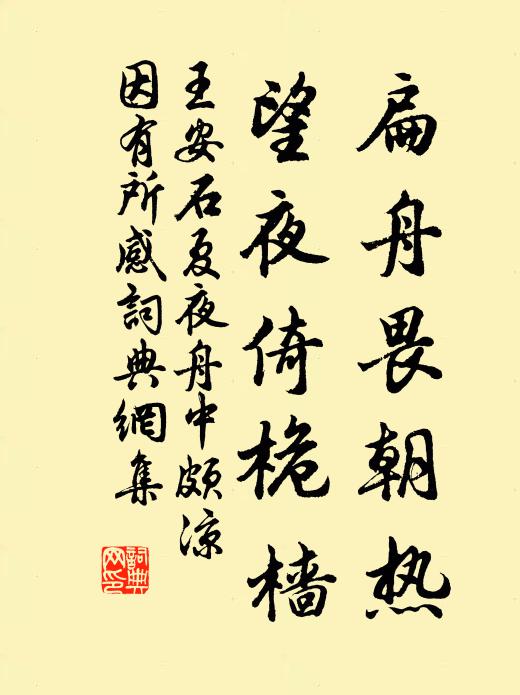 扁舟畏朝热
望夜倚桅樯
王安石夏夜舟中颇凉
因有所感词典網集
詞典网印